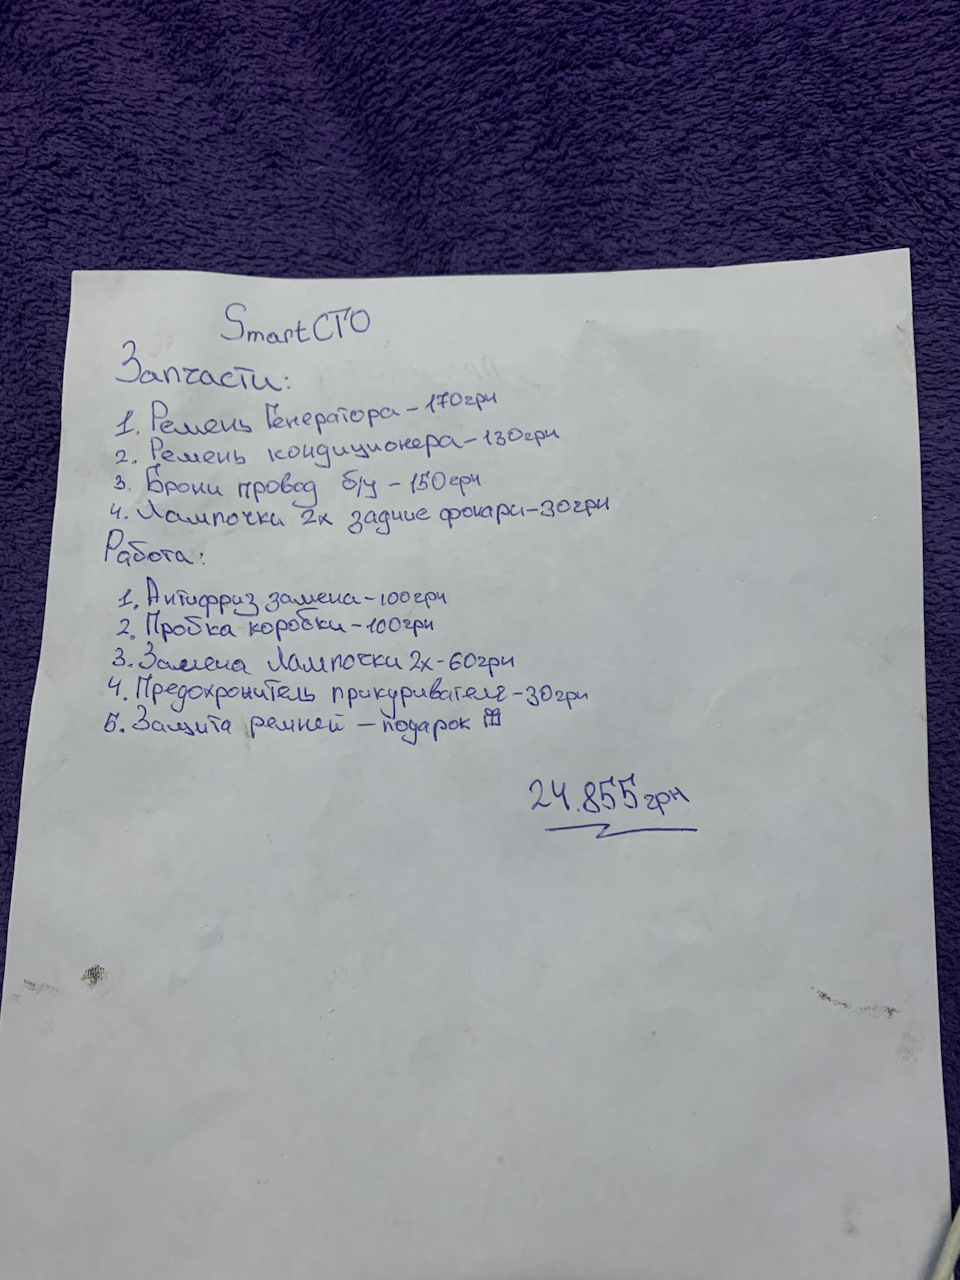 SmartСТО
Запчасти:
1. Ремень Генератора - 170грн
2. Ремень кондиционера - 130грн
3. Брони провод б/у - 150грн
4. Лампочки 2х задние фонари - 30грн
Работа:
1. Антифриз замена - 100грн
2. Пробка коробки - 100грн
3. Замена Лампочки 2х - 60грн
4. Предохронитель прикуривателя - 30грн
5. Защита ремней - подарок
24.855грн